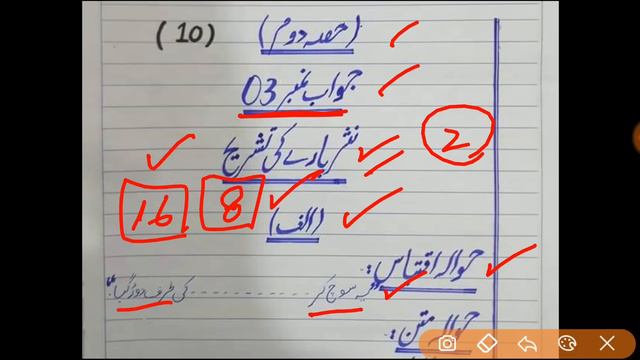 (حصہ دوم) (10)
جواب نمبر 03
نثر پارے کی تشریح 2
(الف) 8 16
حوالہ اقتباس:
"یہ سوچ کر ............ کی طرف دوڑ گیا"
حوالہ متن: